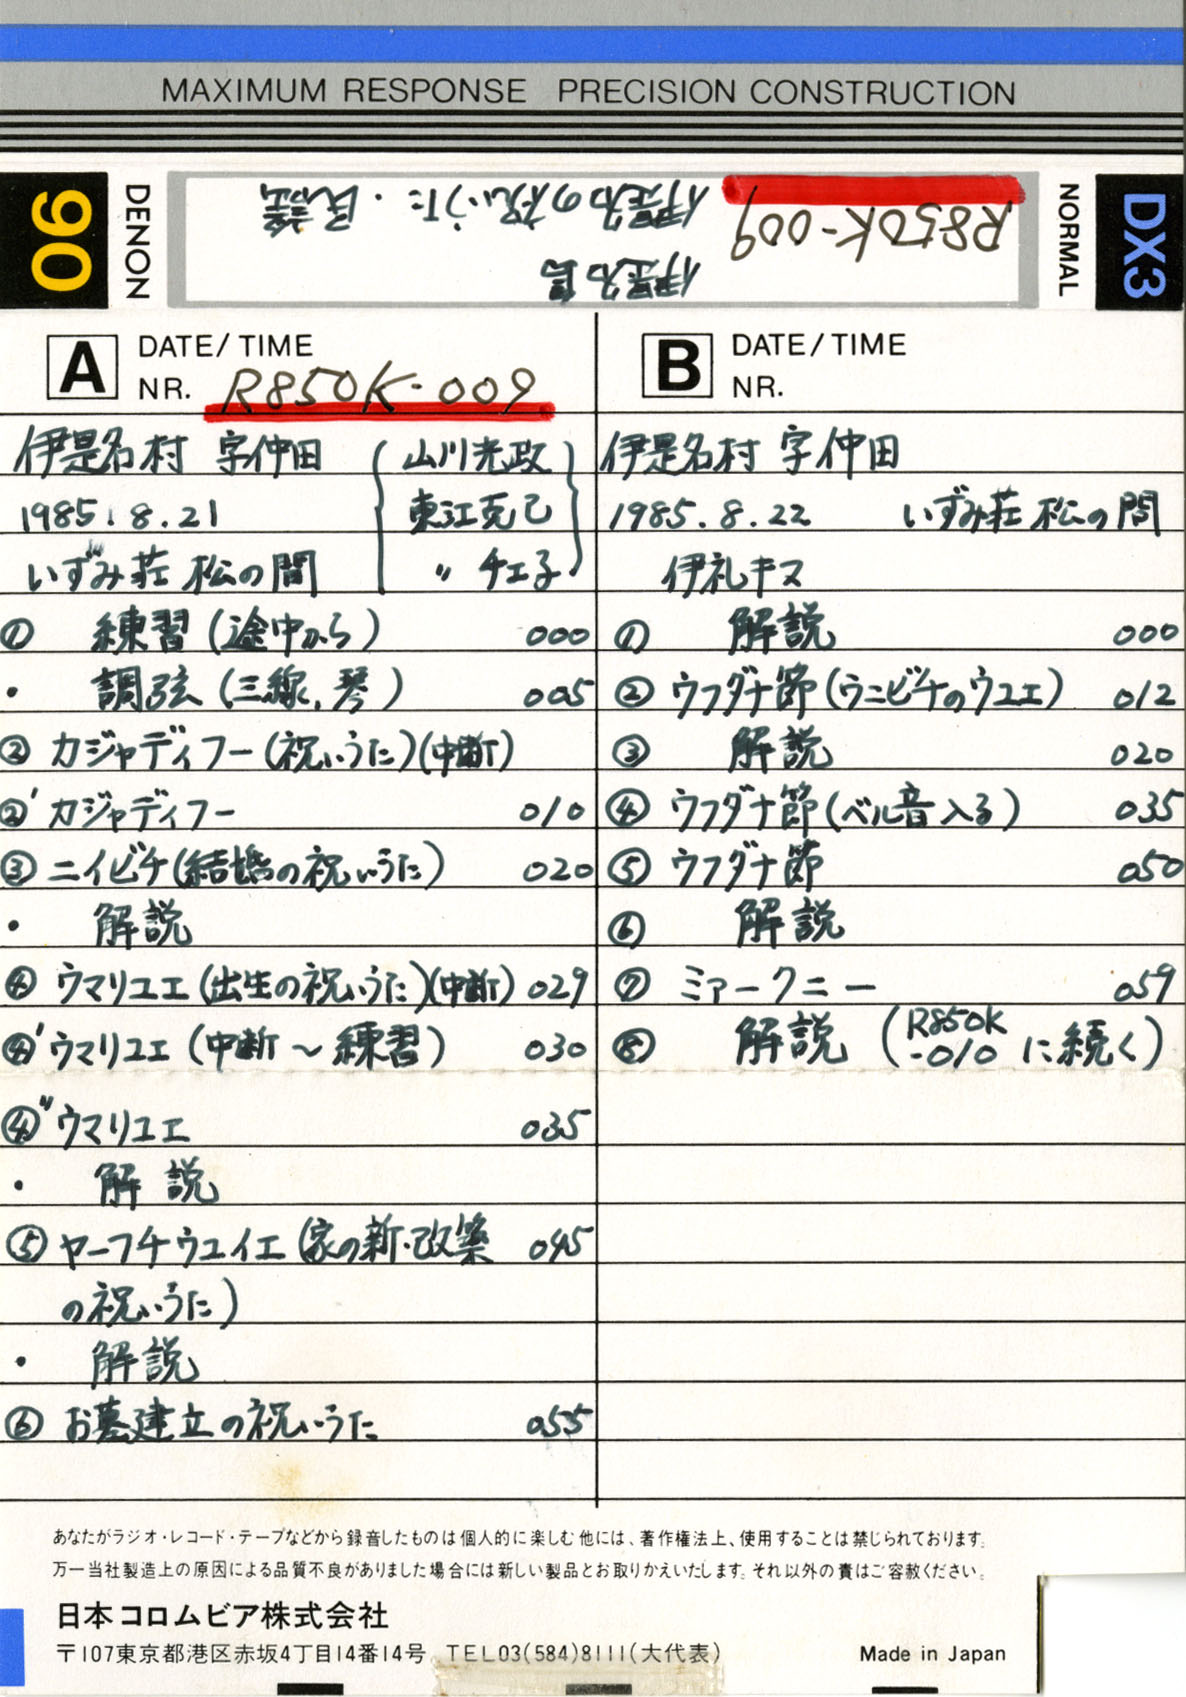 MAXIMUM RESPONSE PRECISION CONSTRUCTION
90
DENON
伊是名島
伊是名の祝いうた・民謡
R850K-009
NORMAL
DX3
A
DATE/TIME
NR. R850K-009
伊是名村 字仲田
山川光政
1985.8.21
東江克己
いずみ荘 松の間
〃 チエ子
① 練習(途中から) 000
・ 調弦(三線,琴) 005
② カジャディフー(祝いうた)(中断)
②' カジャディフー 010
③ ニイビチ(結婚の祝いうた) 020
・ 解説
④ ウマリユエ(出生の祝いうた)(中断) 029
④' ウマリユエ (中断〜練習) 030
④" ウマリユエ 035
・ 解説
⑤ ヤーフチウユイエ (家の新・改築 045
の祝いうた)
・ 解説
⑥ お墓建立の祝いうた 055
B
DATE/TIME
NR.
伊是名村 字仲田
1985.8.22 いずみ荘 松の間
伊礼キヌ
① 解説 000
② ウフダナ節(ウニビチのウユエ) 012
③ 解説 020
④ ウフダナ節(ベル音入る) 035
⑤ ウフダナ節 050
⑥ 解説
⑦ ミャークニー 059
⑧ 解説 (R850K
-010 に続く)
あなたがラジオ・レコード・テープなどから録音したものは個人的に楽しむ他には、著作権法上、使用することは禁じられております。
万一当社製造上の原因による品質不良がありました場合には新しい製品とお取りかえいたします。それ以外の責はご容赦ください。
日本コロムビア株式会社
〒107東京都港区赤坂4丁目14番14号 TEL03(584)8111(大代表)
Made in Japan